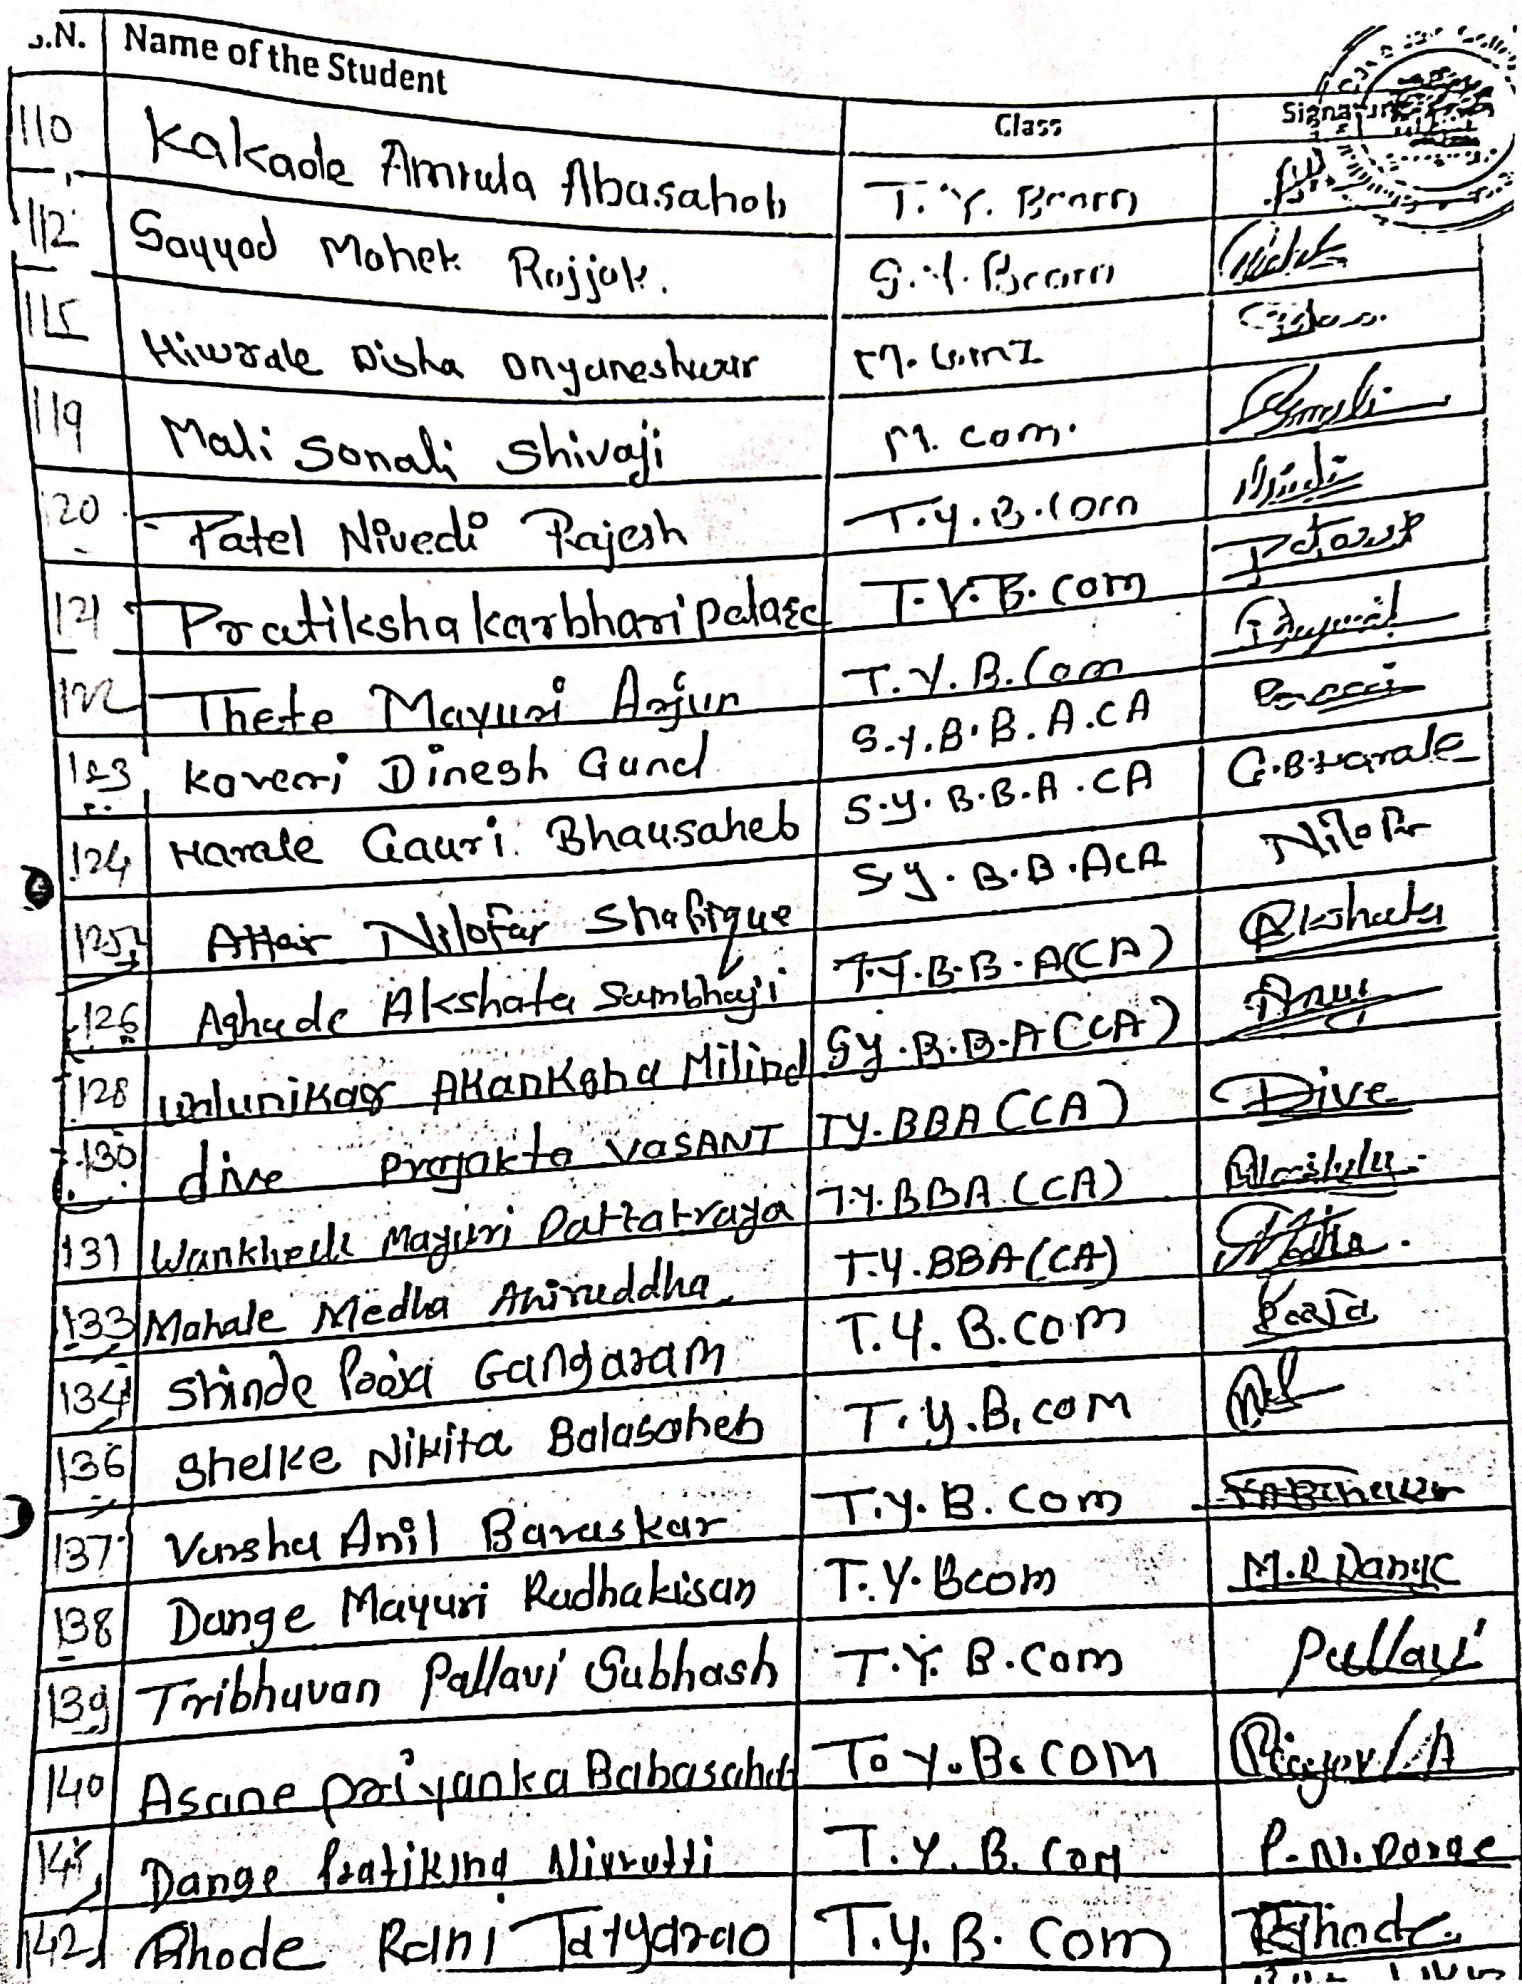 S.N. Name of the Student Class Signature
110 Kakade Amruta Abasaheb T.Y. Bcom
112 Sayyad Mahek Rajjak. S.Y. Bcom
115 Hiwrale Disha Dnyaneshwar M.
119 Mali Sonali Shivaji M. com.
120 Patel Nivedi Rajesh T.y.B.com
121 Pratiksha karbhari T.Y.B.com
122 Thete Mayuri Arjun T.Y.B.Com
123 kaveri Dinesh Gund S.Y.B.B.A.CA
124 Harale Gauri Bhausaheb S.y.B.B.A.CA G.B.Harale
125 Attar Nilofar Shafique S.y.B.B.ACA Nilofar
126 Aghade Akshata Sambhaji T.Y.B.B.A(CA) Akshata
128 Akanksha Milind Sy.B.B.A(CA)
130 dive Prajakta VASANT TY.BBA(CA) Dive
131 Wankhede Mayuri Dattatraya T.Y.BBA(CA)
133 Mahale Medha Aniruddha T.Y.BBA(CA) Medha.
134 Shinde Pooja Gangaram T.Y.B.COM Pooja
136 Shelke Nikita Balasaheb T.Y.B.com
137 Varsha Anil Bavaskar T.y.B.Com
138 Dange Mayuri Radhakisan T.Y.Bcom M.R Dange
139 Tribhuvan Pallavi Subhash T.Y.B.Com Pallavi
140 Asane priyanka Babasaheb T.Y.B.COM
141 Dange Pratiksha Nivrutti T.Y.B.Com P.N.Dange
142 Bhode Rani Tatyarao T.Y.B.Com